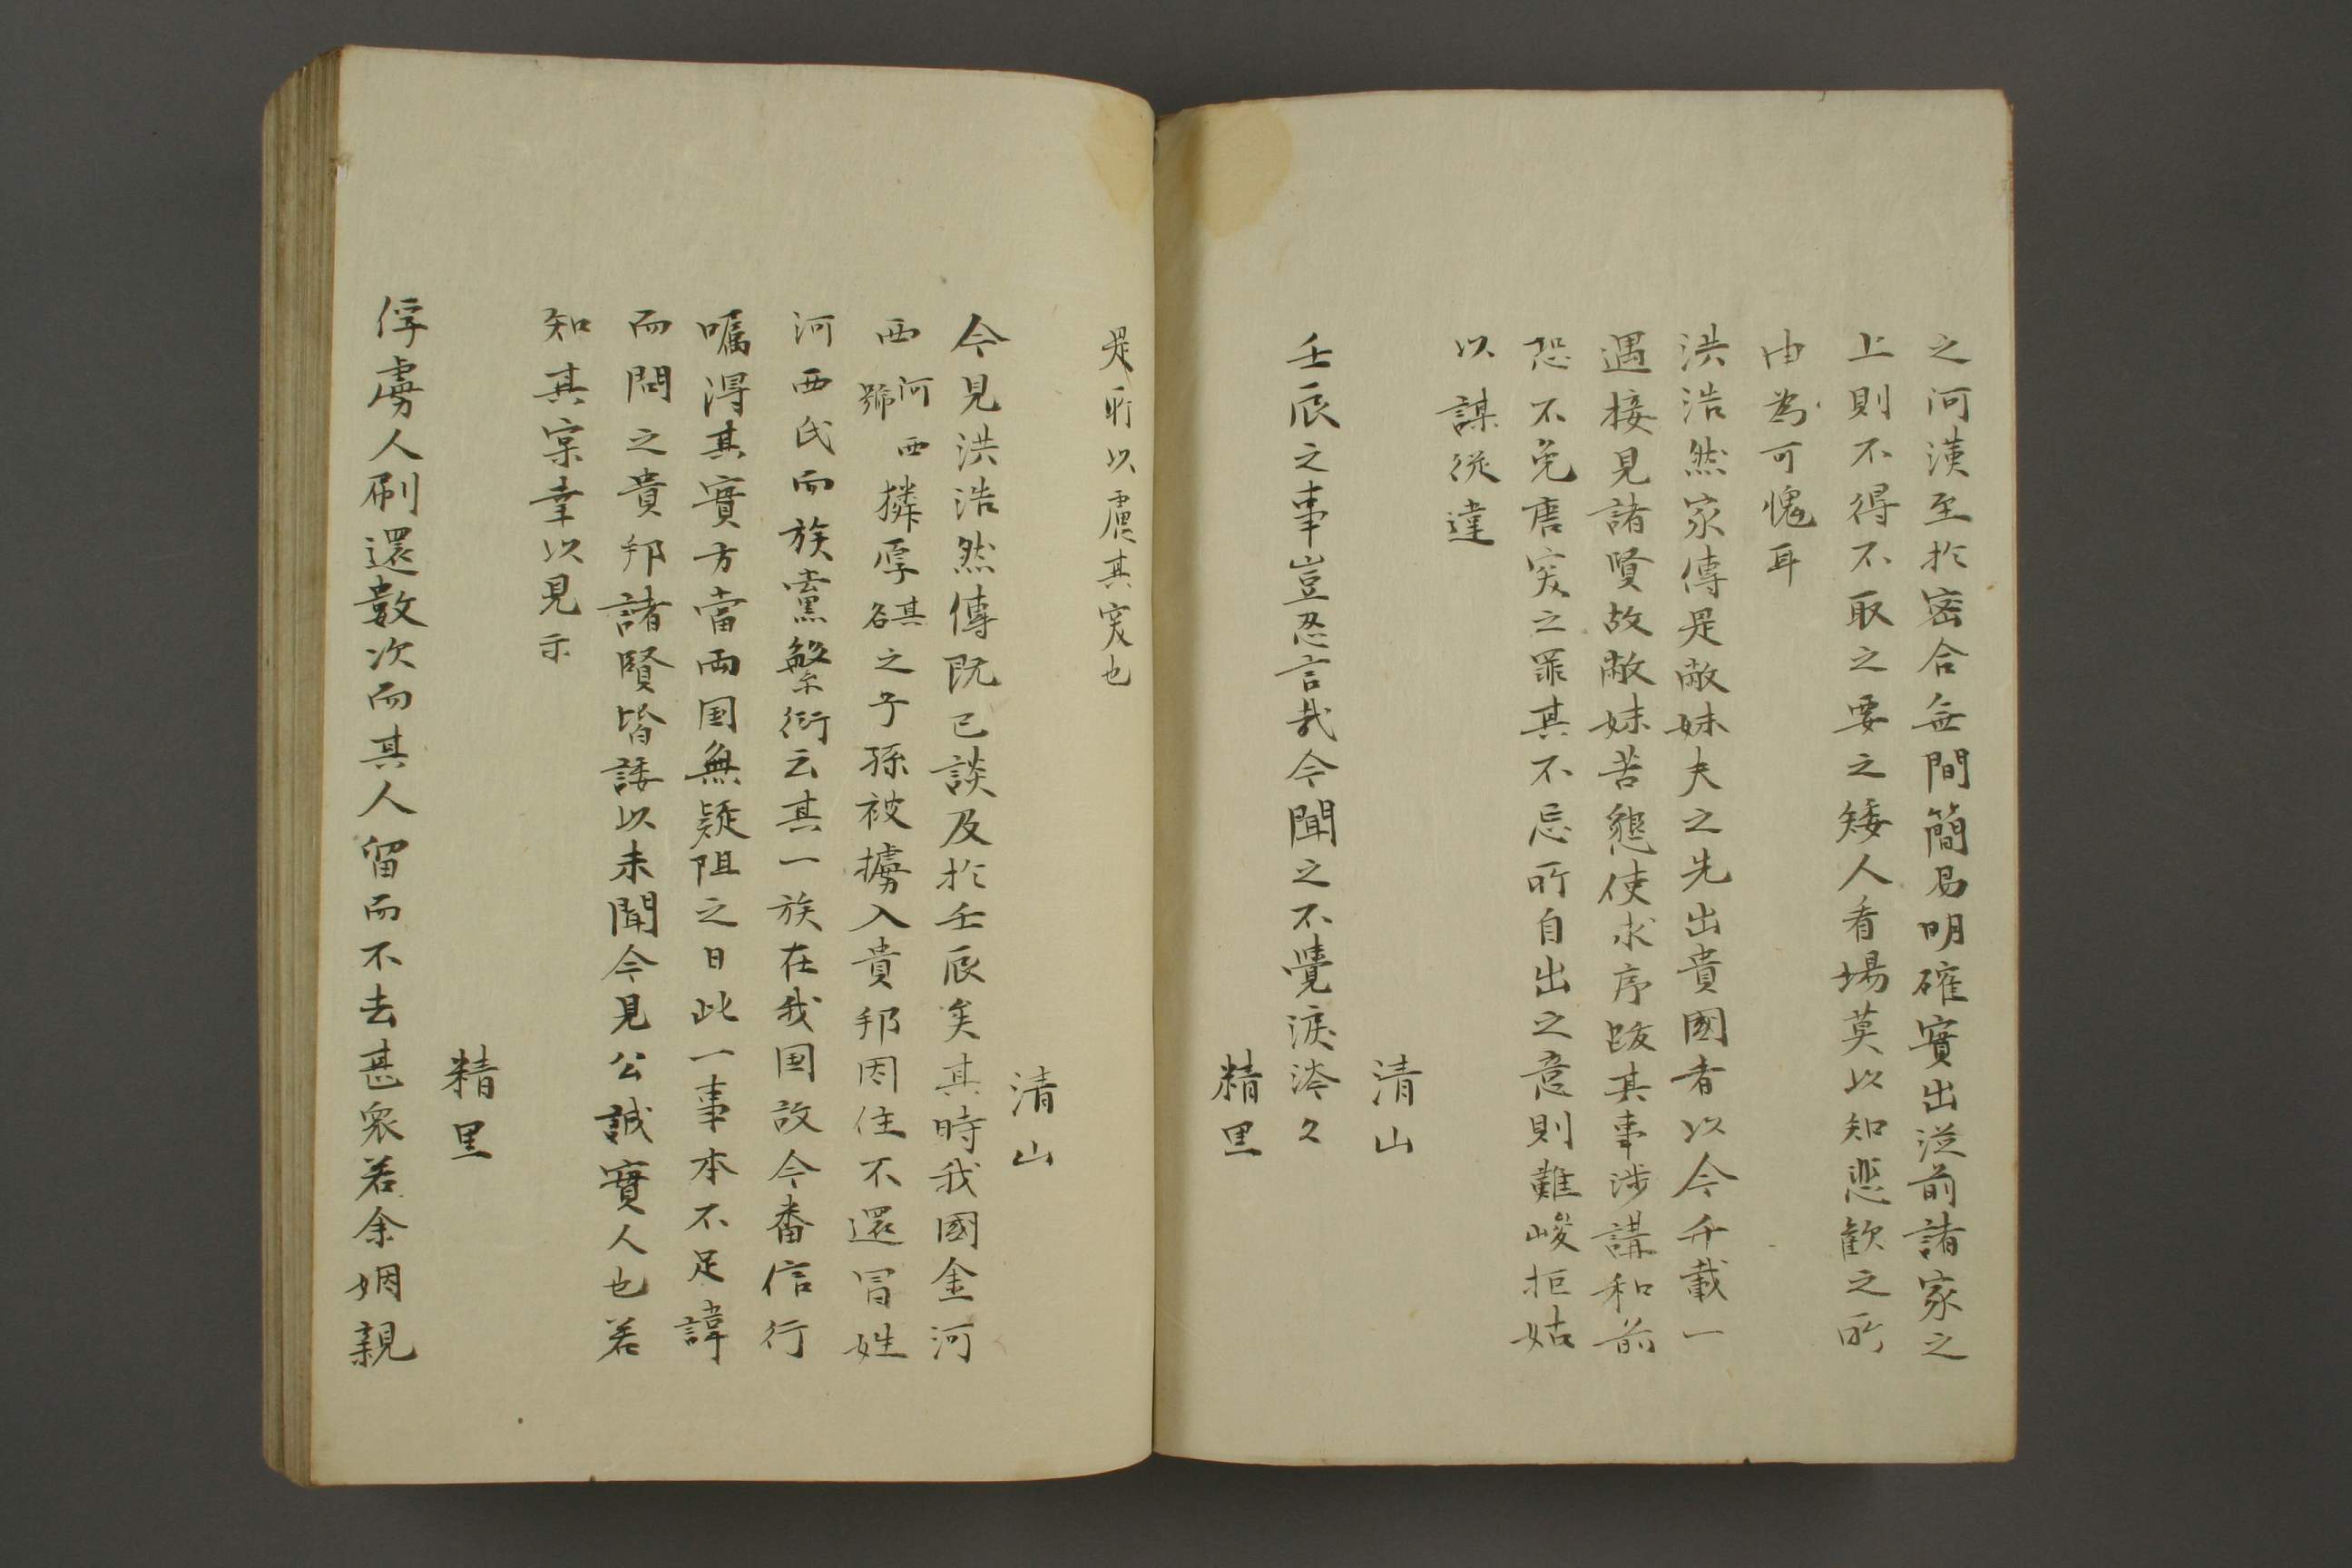 之河漢至於密合無間簡易明確實出從前諸家之
上則不得不取之要之矮人看場莫以知悲歡之所
由為可愧耳
洪浩然家傳是敝妹夫之先出貴國者以今千載一
遇接見諸賢故敝妹苦懇使求序跋其事涉講和前
恐不免唐突之罪其不忌所自出之意則難峻拒姑
以謀從違
清山
壬辰之事豈忍言哉今聞之不覺淚涔々
精里
是所以虞其突也
清山
今見洪浩然傳既已談及於壬辰矣其時我國金河
西河西號撛厚其名之子孫被擄入貴邦因住不還冒姓
河西氏而族黨繁衍云其一族在我国故今番信行
囑得其實方當両国無疑阻之日此一事本不足諱
而問之貴邦諸賢皆諉以未聞今見公誠實人也若
知其宗幸以見示
精里
俘虜人刷還數次而其人留而不去甚衆若余姻親